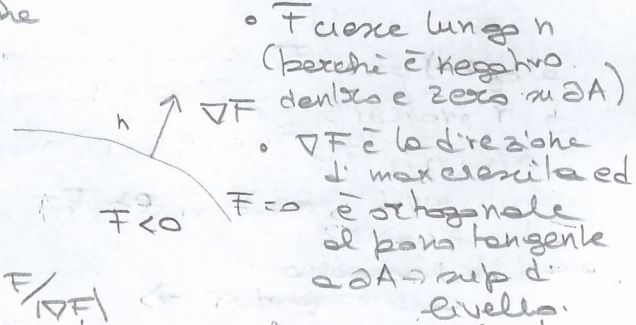 he
• F cresce lungo n
(perchè è negativo
dentro e zero su ∂A)
n ∇F
• ∇F è la direzione
di max crescita ed
F<0 F=0 è ortogonale
al piano tangente
a ∂A → sup di
livello.
F/|∇F|